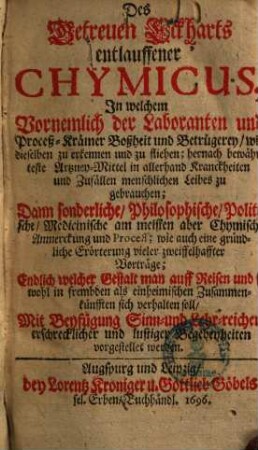 Des
Getreuen Eckharts
entlauffener
CHYMICUS,
In welchem
Vornemlich der Laboranten und
Proceß-Krämer Boßheit und Betrügerey/ wie
dieselben zu erkennen und zu fliehen; hernach bewähr-
teste Artzney-Mittel in allerhand Kranckheiten
und Zufällen menschlichen Leibes zu
gebrauchen;
Dann sonderliche/ Philosophische/ Politi-
sche/ Medicinische am meisten aber Chymische
Anmerckung und Process; wie auch eine gründ-
liche Erörterung vieler zweiffelhaffter
Vorträge;
Endlich welcher Gestalt man auff Reisen und
wohl in frembden als einheimischen Zusammen-
künfften sich verhalten soll/
Mit Beyfügung Sinn- und Lehr-reicher
erschrecklicher und lustiger Begebenheiten
vorgestellet werden.
Augspurg und Leipzig/
bey Lorentz Kroniger u. Gottlieb Göbels
sel. Erben/ Buchhändl. 1696.